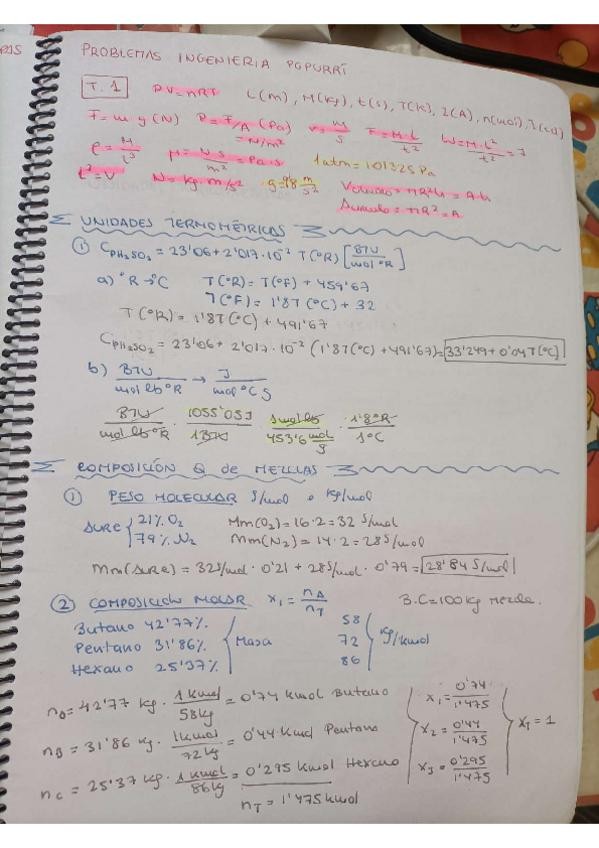 PROBLEMAS INGENIERIA POPURRÍ
T. 1 PV=nRT L(m), M(Kg), t(s), T(K), I(A), n(mol), J(cd)
F=m g (N) P=F/A (Pa) = N/m² v=m/s F=M·L/t² W=M·L²/t²=J
ρ=M/L³ μ=N·s/m²=Pa·s 1atm=101325 Pa
L³=V N=kg·m/s² g=9'8 m/s² Volumen=πR²h=A·h
=πR²=A
UNIDADES TERMOMÉTRICAS
① C_PH₂SO₂ = 23'06+2'017·10⁻² T(ºR) [BTU/mol ºR]
a) ºR→ºC T(ºR)=T(ºF)+459'67
T(ºF)=1'8T(ºC)+32
T(ºR)=1'8T(ºC)+491'67
C_PH₂SO₂ = 23'06+2'017·10⁻² (1'8T(ºC)+491'67)=33'249+0'04T(ºC)
b) BTU/mol lb ºR → J/mol ºC g
BTU/mol lb ºR · 1055'05J/1BTU · 1mol lb/453'6 mol/g · 1'8ºR/1ºC
COMPOSICIÓN Q de MEZCLAS
① PESO MOLECULAR g/mol o kg/mol
AIRE { 21% O₂ Mm(O₂)=16·2=32 g/mol
79% N₂ Mm(N₂)=14·2=28 g/mol
Mm(AIRE)=32g/mol·0'21+28g/mol·0'79=28'84 g/mol
② COMPOSICIÓN MOLAR x₁=nA/nT B.C=100kg mezcla.
Butano 42'77% 58
Pentano 31'86% } Masa 72 kg/kmol
Hexano 25'37% 86
nA=42'77 kg · 1kmol/58kg = 0'74 kmol Butano x₁=0'74/1'475
nB=31'86 kg · 1kmol/72kg = 0'44 kmol Pentano x₂=0'44/1'475 xT=1
nC=25'37 kg · 1kmol/86kg = 0'295 kmol Hexano x₃=0'295/1'475
nT=1'475kmol